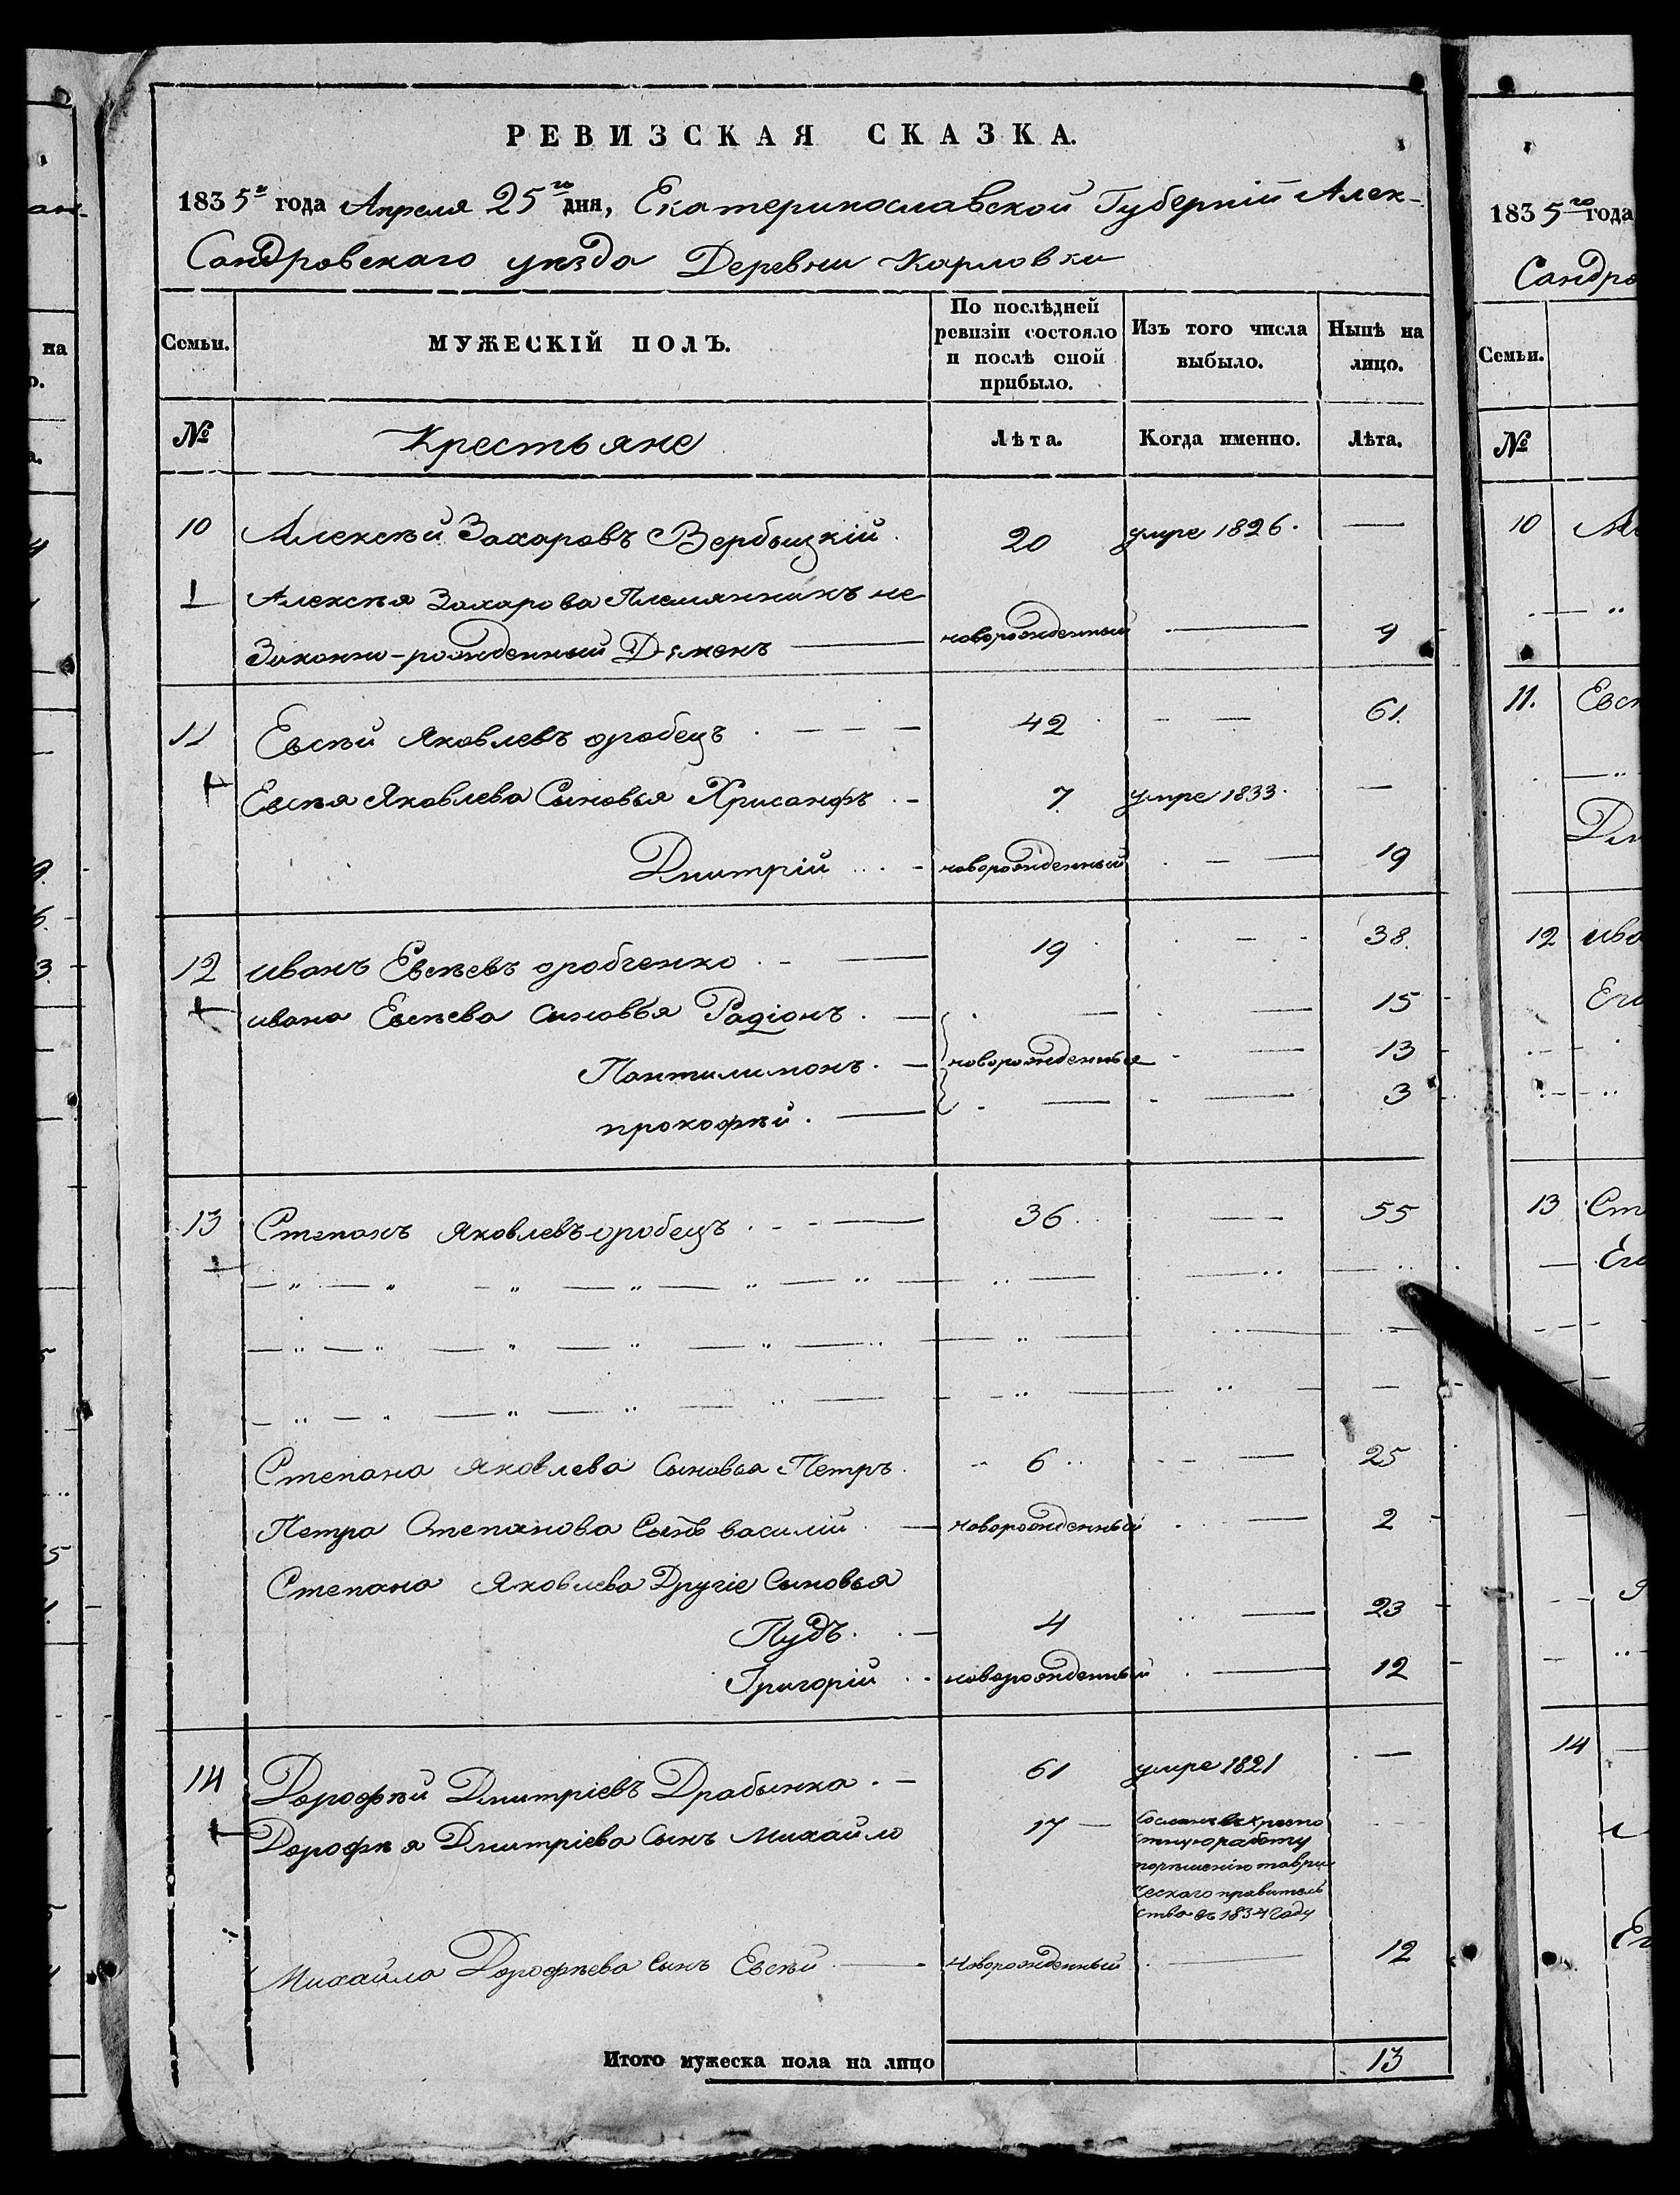 РЕВИЗСКАЯ СКАЗКА.
1835го года Апреля 25го дня, Екатеринославской Губерніи Алек-
Сандровскаго уѣзда Деревни Карловки
Семьи. МУЖЕСКІЙ ПОЛЪ. По послѣдней ревизіи состояло и послѣ оной прибыло. Изъ того числа выбыло. Нынѣ на лицо.
№ Крестьяне Лѣта. Когда именно. Лѣта.
10 Алексѣй Захаровъ Вербыцкій 20 умре 1826. —
1 Алексѣя Захарова Племянникъ не
Законно-рожденный новорожденный — 9
11 Евсѣй Яковлевъ оробецъ 42 — 61.
Евсѣя Яковлева Сыновья Хрисанфъ 7 умре 1833. —
Дмитрій новорожденный — 19
12 иванъ Евсѣевъ оробченко 19 — 38.
ивана Евсѣева Сыновья Радіонъ — 15
Пантилимонъ новорожденные — 13
прокофѣй — 3
13 Степанъ Яковлевъ оробецъ 36 — 55
Степана Яковлева Сыновья Петръ 6 — 25
Петра Степанова Сынъ василій новорожденный — 2
Степана Яковлева Другіе Сыновья
Пудъ 4 — 23
Григорій новорожденный — 12
14 Дорофѣй Дмитріевъ Драбынка 61 умре 1821 —
Дорофѣя Дмитріева Сынъ Михайло 17 — Сосланъ въ крепо
стную работу
порѣшенію таври
ческаго правитель
ства въ 1834 Году
Михайла Дорофѣева Сынъ Евсѣй новорожденный — 12
Итого мужеска пола на лицо 13
на
1835го года
Сандро
Семьи.
№
10
11.
12
13
14